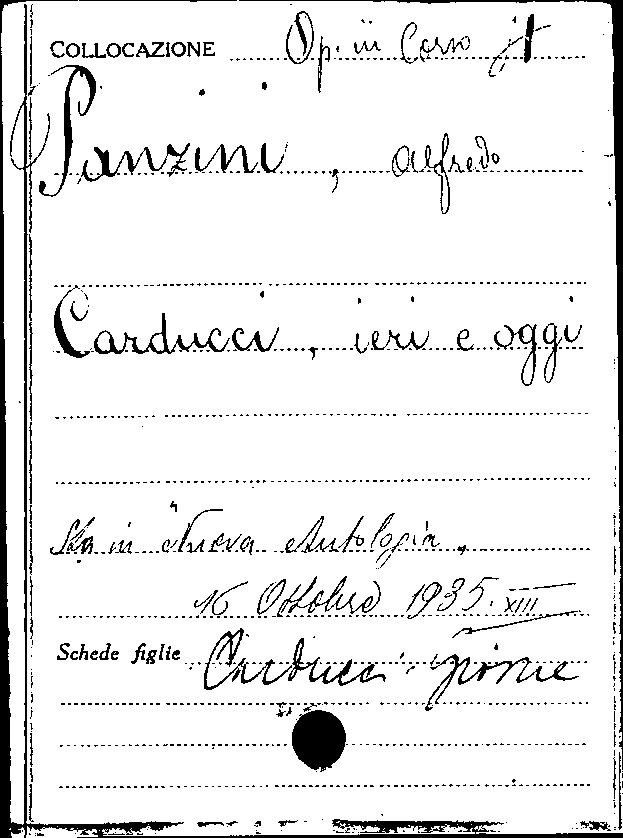 COLLOCAZIONE Op. in Corso
Panzini, Alfredo
Carducci, ieri e oggi
Sta in "Nuova Antologia„
16 Ottobre 1935. XIII
Schede figlie Carducci